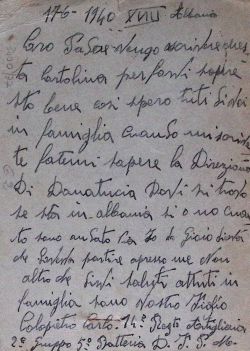 17-6-1940 XVIII Albania
Caro Padre Vengo a scrivere ques
ta Cartolina per farti sapere
sto bene cosi spero tuti di voi
in famiglia Cuando mi scrive
te fatemi sapere la Direzione
Di si trova
se sta in albania si o no cuan
to sono andato la Io da Gioia
che partire apresso me Non
altro che saluti a tutti in
famiglia sono Vostro Figlio
Colapietro Carlo. 14º Regt Artiglieria
2º Gruppo 5º Batteria D.